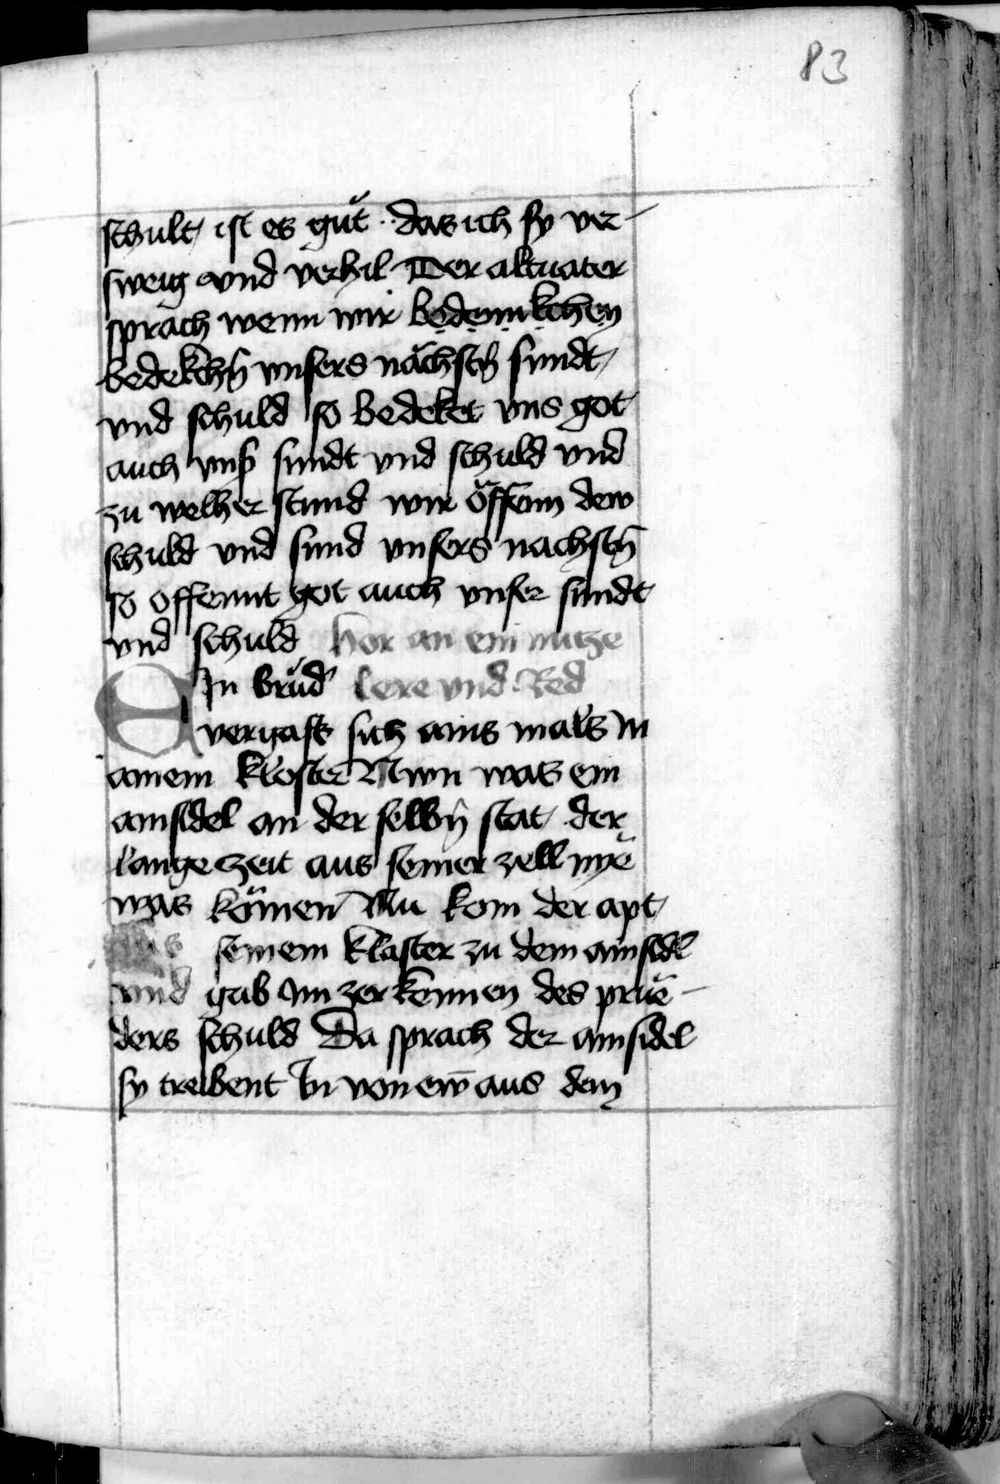 83
schult ist es guͤt · das ich sy ver-
sweig vnd verhil Der altuater
sprach wenn wir bedennkchen
bedekchn̄ vnsers nächstn̄ sundt
vnd schuld so bedeket vns got
auch vnß sundt vnd schuld vnd
zu welher stund wir öffenn dew
schuld vnd sund vnsers nachstn̄
so offennt got auch vnser sundt
vnd schuld Hor an ein nutze
EIn bruͤd' lere vnd Red
vergast sich ains mals in
ainem kloster Nwn was ein
ainsidel an der selbn̄ stat der
lange zeit aus seiner zell nye
was kömen Nu kom der apt
aus seinem klaster zu dem ainsidl
vnd gab im zerkennen des prue-
ders schuld Da sprach der ainsidel
sy treibent In von ew̄ aus dem